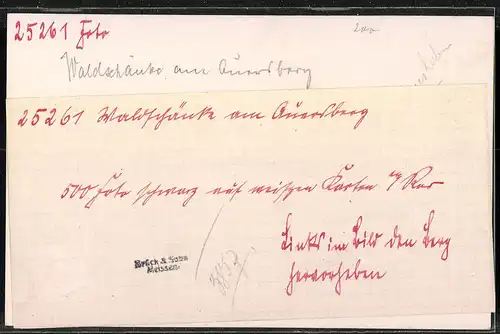 25261 Foto
200
Waldschänke am Auersberg
25261 Waldschänke am Auersberg
500 Foto schwarz auf weissen Karten
Links im Bild den Berg
hervorheben
Brück & Sohn
Meissen